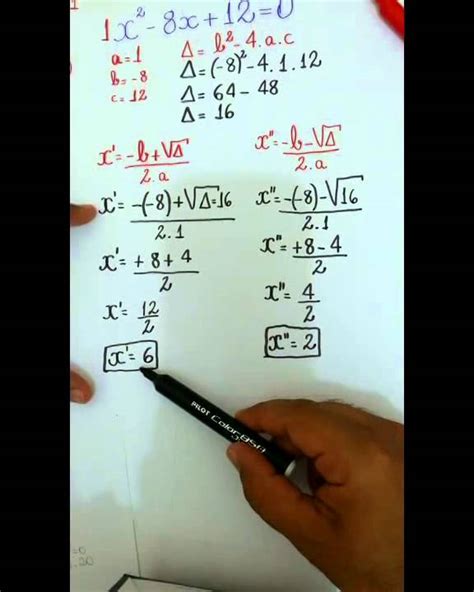 1
1x² - 8x + 12 = 0
a = 1
b = -8
c = 12
Δ = b² - 4.a.c
Δ = (-8)² - 4.1.12
Δ = 64 - 48
Δ = 16
x' = -b + √Δ / 2.a
x' = -(-8) + √Δ=16 / 2.1
x' = +8 + 4 / 2
x' = 12 / 2
x' = 6
x'' = -b - √Δ / 2.a
x'' = -(-8) - √16 / 2.1
x'' = +8 - 4 / 2
x'' = 4 / 2
x'' = 2
PILOT Color 850